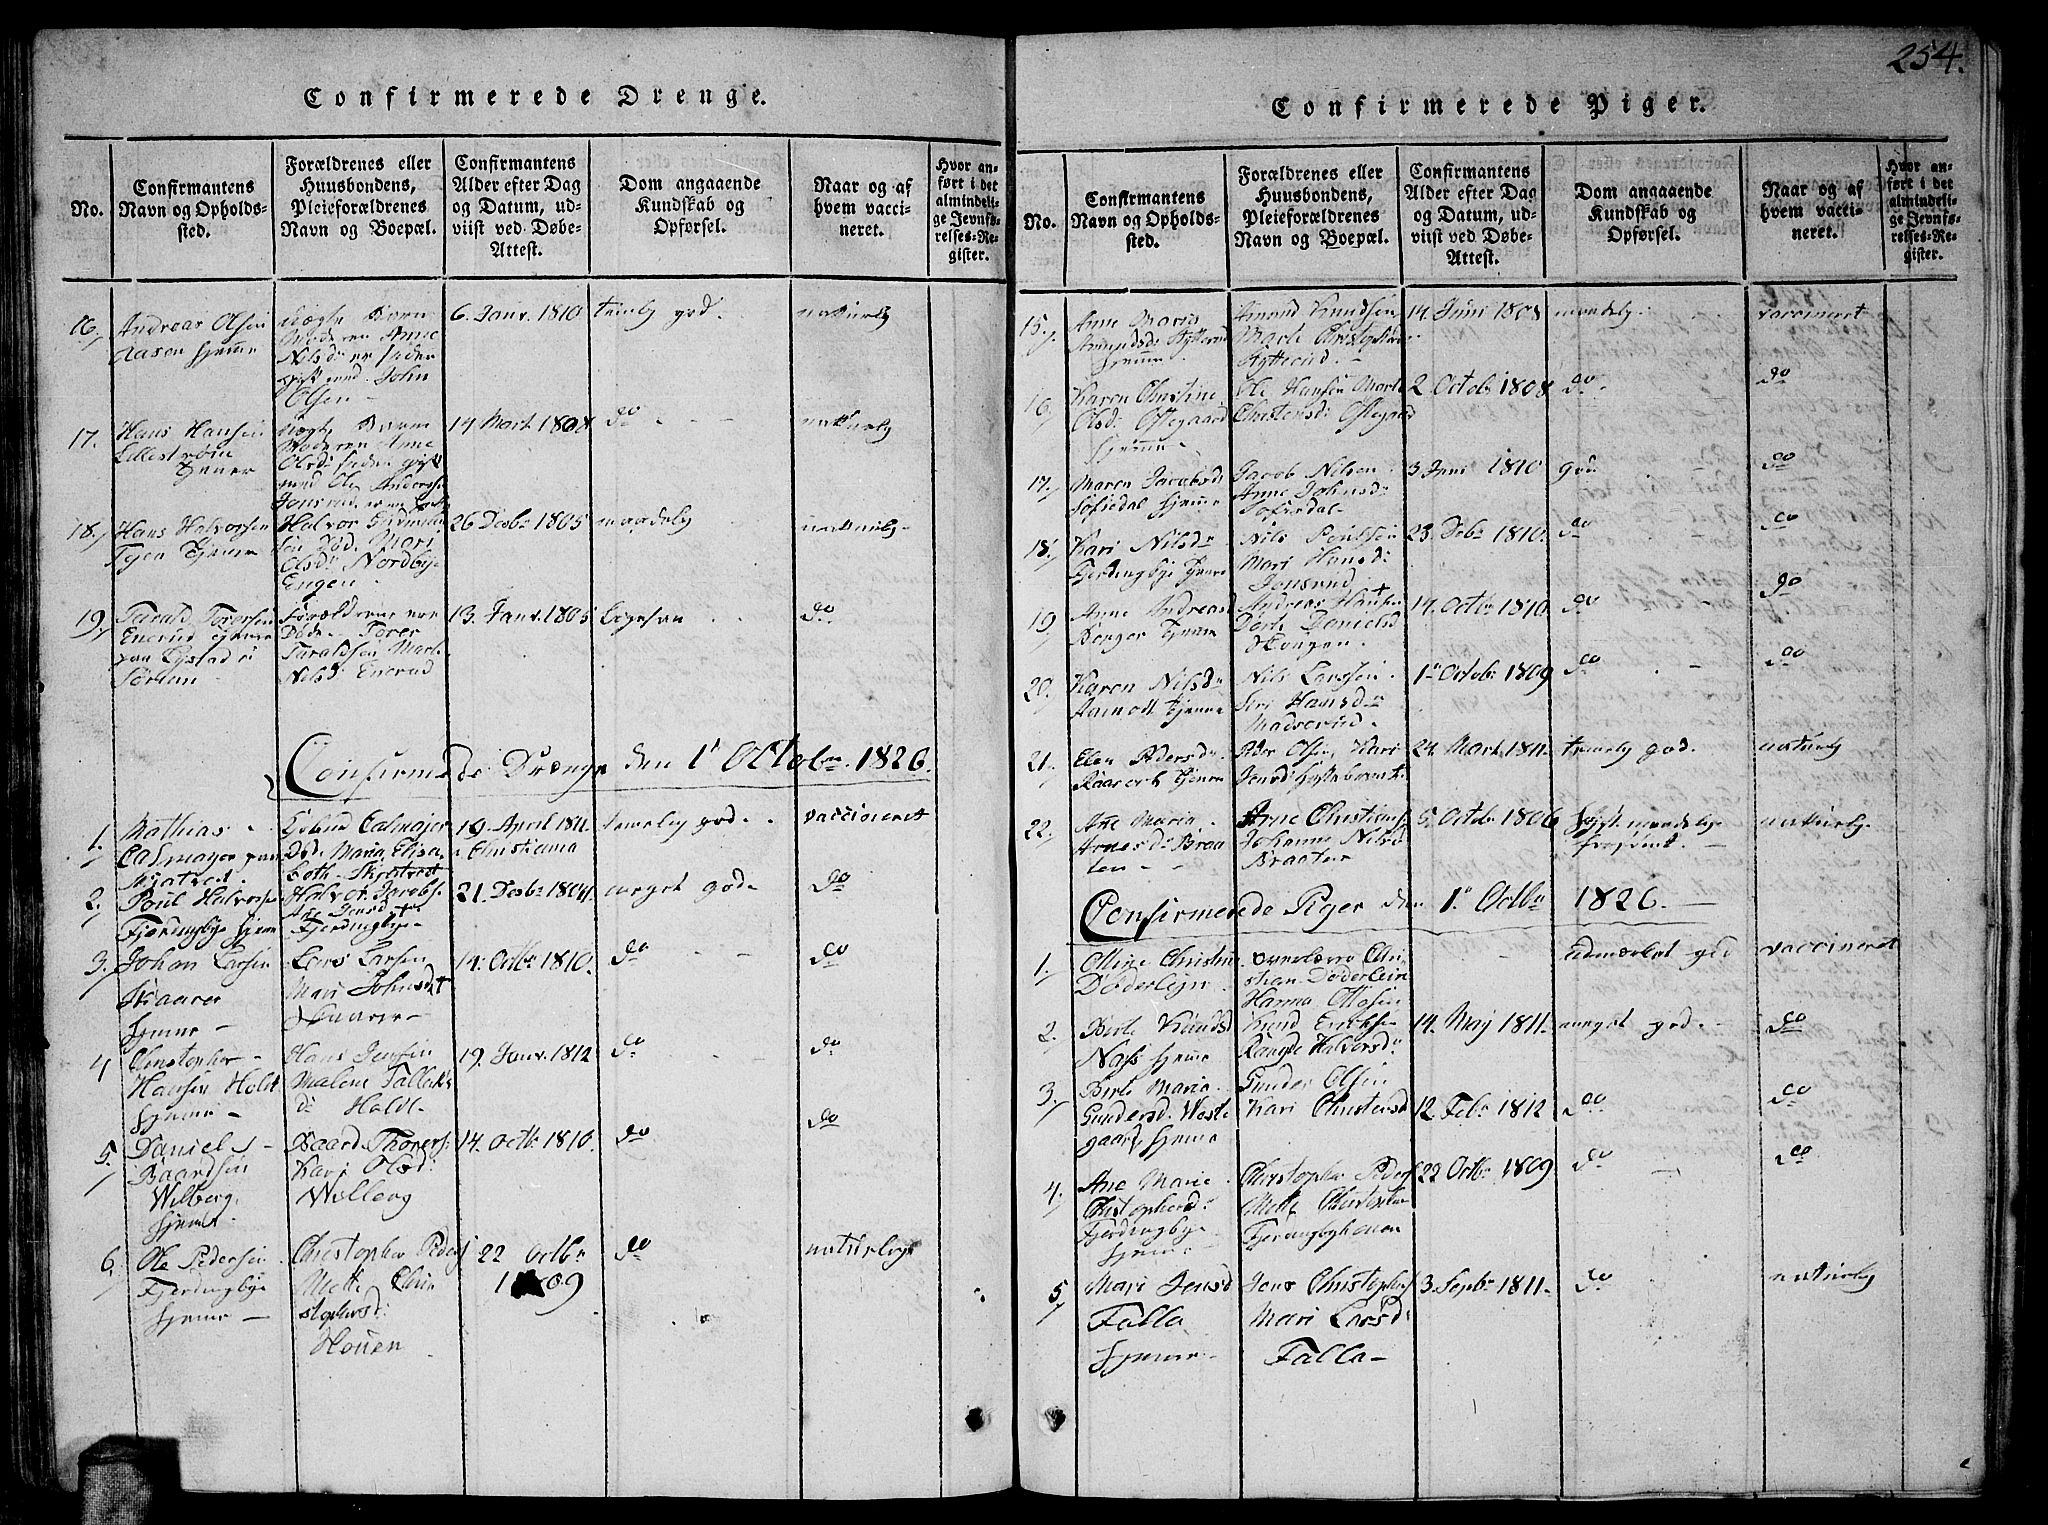 Confirmerede Drenge.
No.
Confirmantens
Navn og Opholds-
sted.
Forældrenes eller
Huusbondens,
Pleieforældrenes
Navn og Boepæl.
Confirmantens
Alder efter Dag
og Datum, ud-
viist ved Døbe-
Attest.
Dom angaaende
Kundskab og
Opførsel.
Naar og af
hvem vacci-
neret.
Hvor an-
ført i det
almindeli-
ge Jevnfø-
relses-Re-
gister.
16.
Andreas Olsen
Aasen hjeme
uægte Barn
Moderen Anne
Nilsd er siden
gift med John
Olsen
6. Janr. 1810
temlig god.
naturlig
17.
Hans Hansen
Lillestrøm
tjener
uægte Barn
Moderen Anne
Olsd siden gift
med Ole Anders
14 Mart. 1808
do
naturlig
18.
Hans Halvorsen
tjener
Halvor
død. Mari
Olsd Nordbye
Engen
26 Decbr 1805
maadelig
naturlig
19
Tarald Torersen
Enerud tjener
paa Lystad i
Forældrene ere
Døde. Torer
Taraldsen Mart
Nilsd Enerud
13. Janr. 1805
ligesaa
do
Confirmerede Drenge den 1. Octobr. 1826.
1.
Mathias
Calmeyer paa
Døde Maria Elisa
beth
19. April 1811
i Christiania
temelig god.
vaccineret
2.
Poul Halvors
Fjerdingbye hjem
Halvor Jacobs
Ane Jensd
Fjerdingbye
21. Decbr 1804
meget god
do
3.
Johan Larsen
Skaarer
hjeme
Lars Larsen
Mari Johnsdt
Skaarer
14. Octbr 1810.
do
do
4
Christopher
Hansen Holt
hjeme
Hans Jensen
Malene Tallak
d Holdt
19. Janr. 1812
do
do
5.
Daniel
Baardsen
Wilberg
hjeme
Baard Thorers
Kari Olsd
Wilberg
14. Octbr 1810.
do
do
6.
Ole Pedersen
Fjerdingbye
hjeme
Christopher Peders
Mette Chri
stophersd
Houen
22 Octbr
1809
do
naturlige
254.
Confirmerede Piger.
No.
Confirmantens
Navn og Opholds-
sted.
Forældrenes eller
Huusbondens,
Pleieforældrenes
Navn og Boepæl.
Confirmantens
Alder efter Dag
og Datum, ud-
viist ved Døbe-
Attest.
Dom angaaende
Kundskab og
Opførsel.
Naar og af
hvem vacci-
neret.
Hvor an-
ført i det
almindeli-
ge Jevnfø-
relses-Re-
gister.
15.
Anne Maria
Amundsd Hytterud
hjeme
Amund Knudsen
Marte Christophers
Hytterud.
14 Juni 1808
maadelig
vaccineret
16
Karen Christine
Olsd Østegaard
hjeme
Ole Hansen Marte
Christensd Østegaard
2. Octobr 1808
do
do
17.
Maren Jacobsd
Sofiedal hjeme
Jacob Nilsen
Anne Johnsd
Sofiedal
3 Juni 1810
god.
do
18.
Kari Nilsd
Fjerdingbye tjener
Nils Poulsen
Mari Hansd
Jonsrud
23. Decbr 1810.
do
do
19
Anne Andreasd
Berger tjener
Andreas Hansen
Dorte Danielsd
14. Octbr 1810.
do
do
20.
Karen Nilsd
Aamodt tjener
Nils Larsen
Siri Hansd
Madserud
1 Octobr 1809
do
do
21.
Elen Pedersd
tjener
Peder Olsen Kari
Jensd
24 Mart. 1811.
temelig god.
naturlig
22.
Ane Maria
Arnesd Braa
ten
Arne Christians
Johanne Nilsd
Braaten
5. Octobr 1806
naturlig.
Confirmerede Piger den 1. Octbr 1826.
1.
Oline Christine
Døderlein.
Chri
stian Døderlein
Hanna Ottesen
udmærket god
vaccineret
2.
Berte Knudsd
Næss hjeme
Knud Eriks
Rangde Halvorsd
14. Maj 1811.
meget god.
do
3.
Berte Maria
Gundersd. Weste
gaard hjeme
Gunder Olsen
Kari Christensd
12 Febr 1812
do
do
4.
Ane Marie
Christophersd
Fjerdingbye
hjeme
Christopher Peders
Mette Christopher
Fjerdingbyhouen
22 Octbr 1809
do
do
5.
Mari Jensd
Falla
hjeme
Jens Christophers
Mari Larsd
Falla
3. Septbr 1811.
do
naturlig